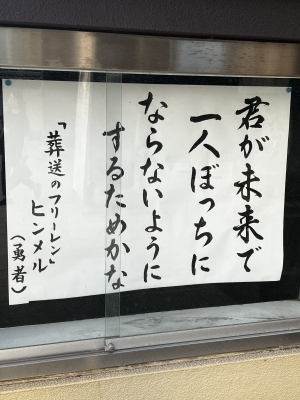 君が未来で
一人ぼっちに
ならないように
するためかな
「葬送のフリーレン
ヒンメル
（勇者）